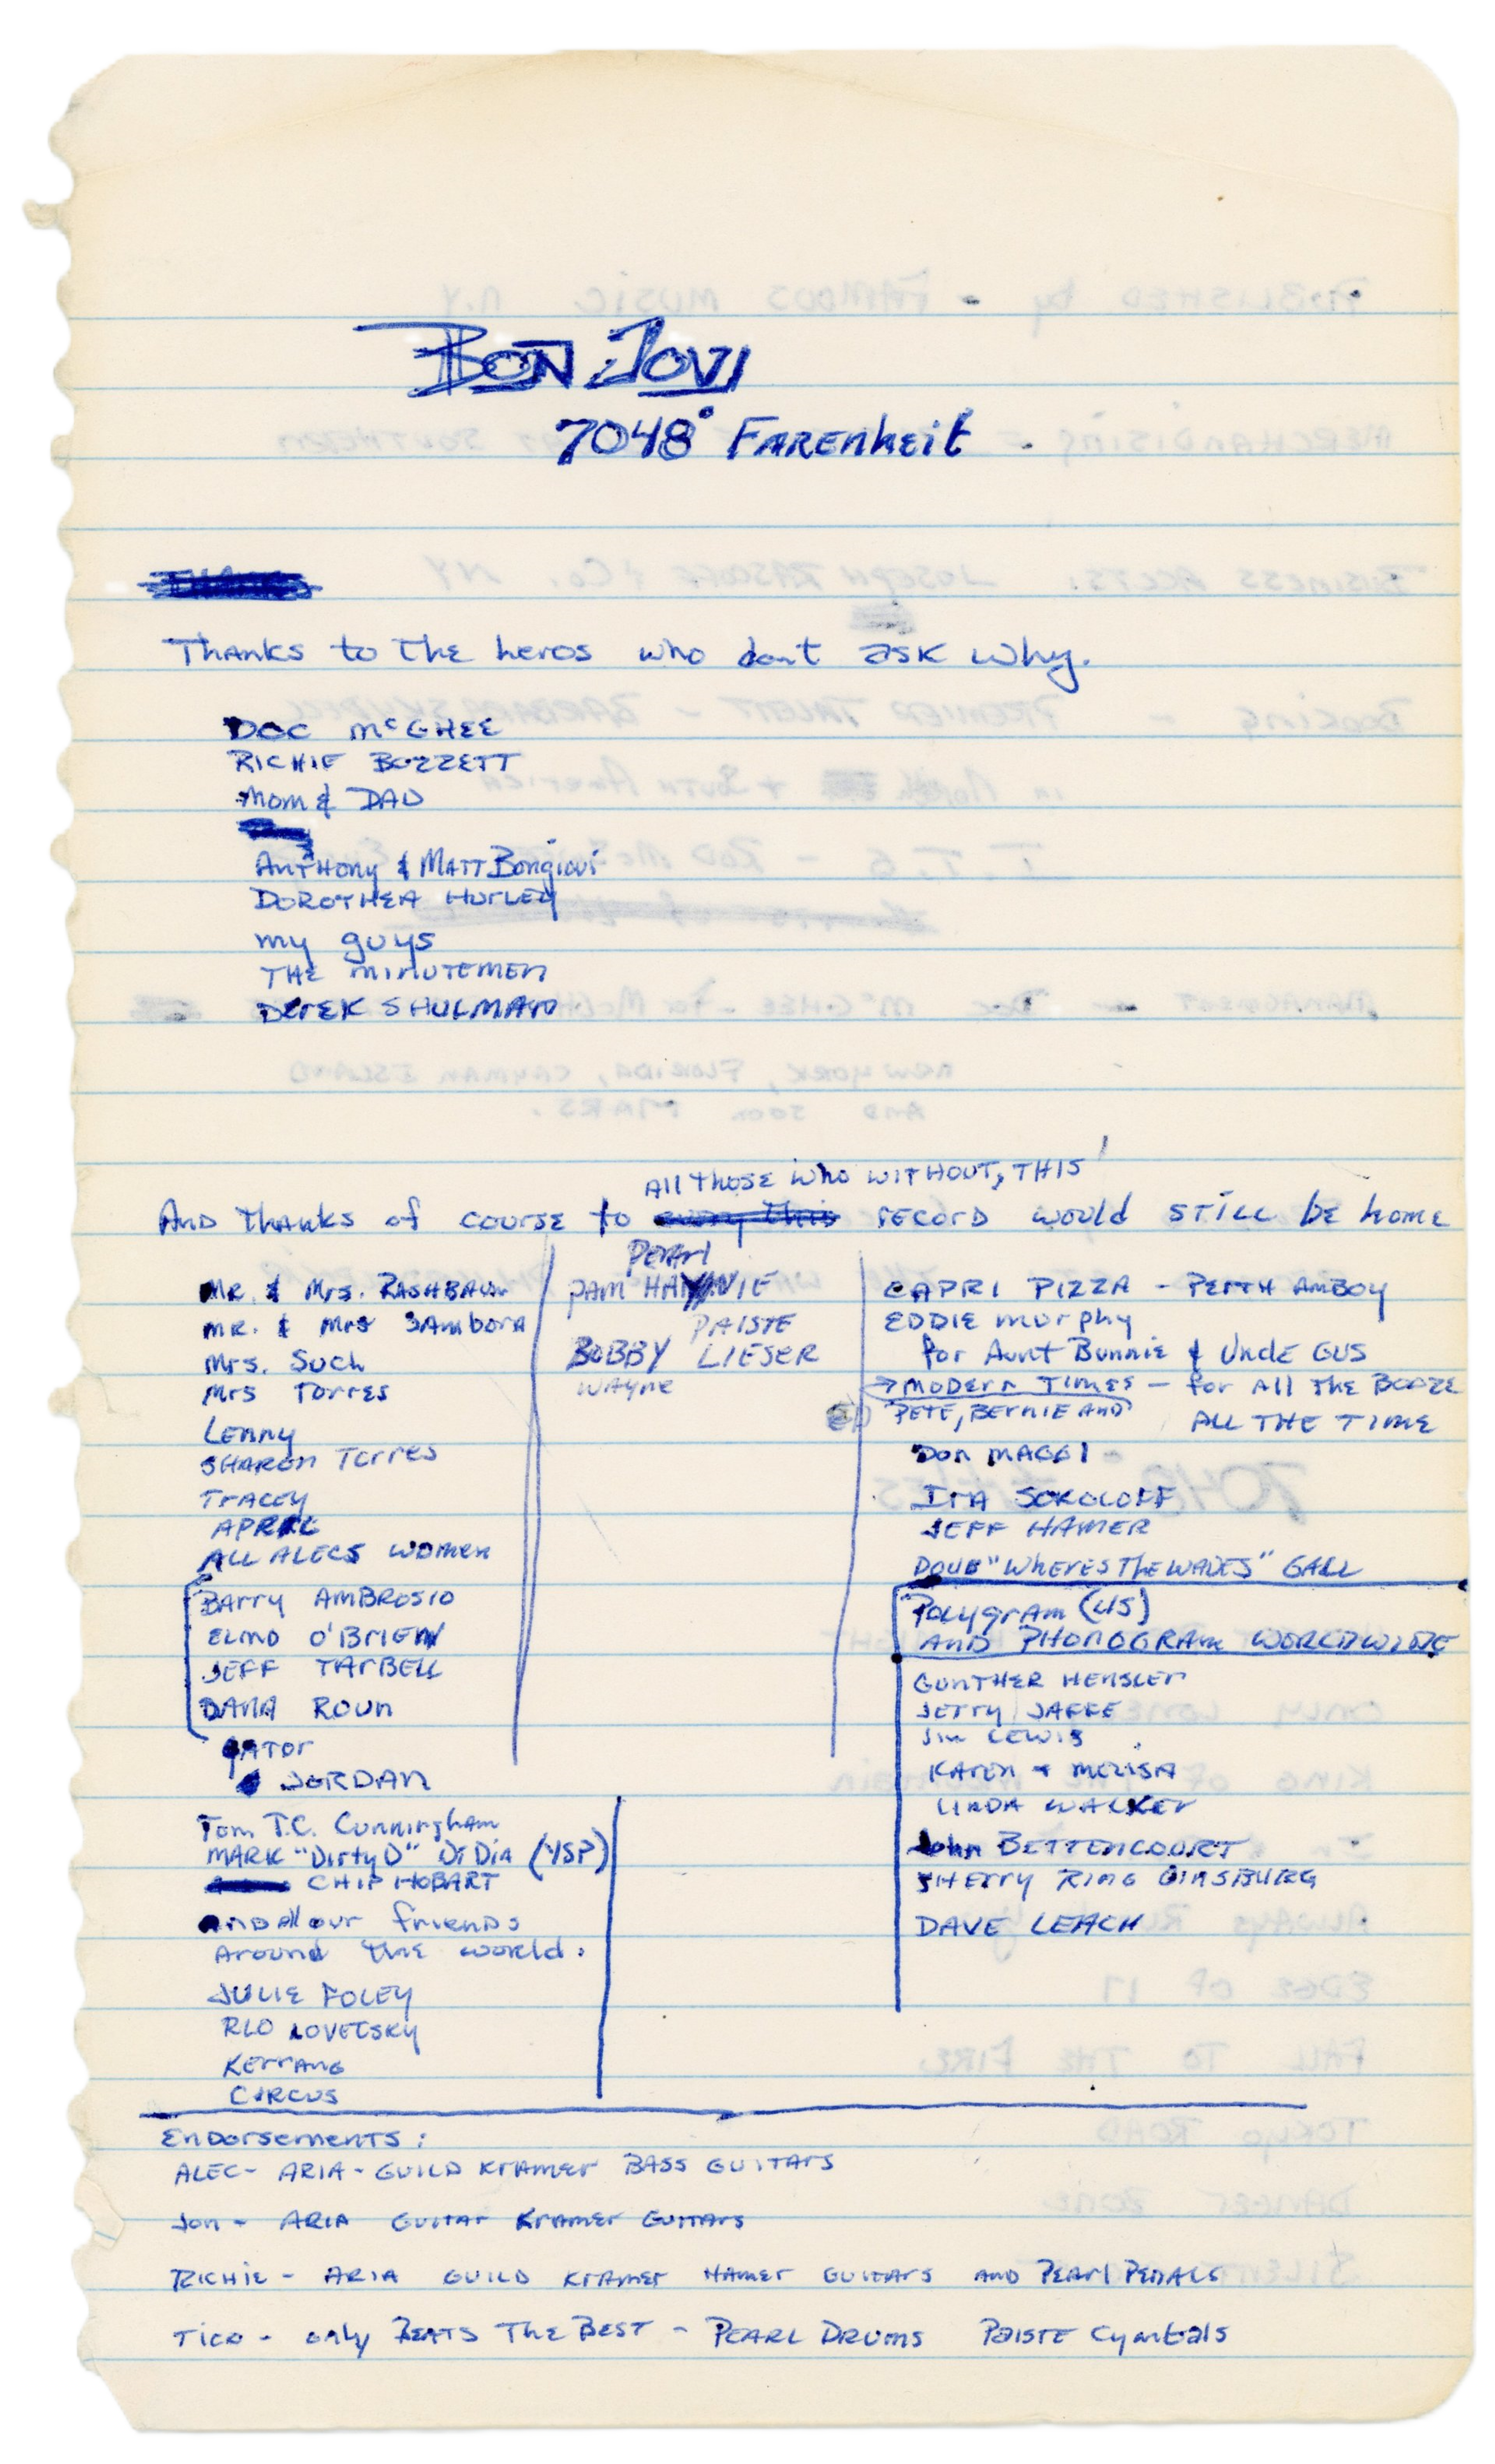 BON JOVI
7048° FARENHEIT
Thanks to the heros who dont ask why.
DOC McGHEE
RICHIE BOZZETT
Mom & DAD
Anthony & Matt Bongiovi
DOROTHEA HURLEY
my guys
THE MINUTEMEN
DEREK SHULMAN
All those who WITHOUT, THIS
AND THANKS of course to record would STILL be home
MR. & Mrs. RASHBAUM
MR. & Mrs SAMBORA
Mrs. Such
Mrs Torres
Lenny
SHARON Torres
TRACEY
APRIL
ALL ALECS WOMEN
Barry AMBROSIO
ELMO O'BRIEN
JEFF TARBELL
DANA ROUN
GATOR
JORDAN
Tom T.C. Cunningham
MARK "DirtyD" DiDia (YSP)
CHIP HOBART
AND All our friends
Around the world.
JULIE FOLEY
LOVETSKY
KERRANG
CIRCUS
Pearl
PAM
PAISTE
BOBBY LIESER
WAYNE
CAPRI PIZZA - PERTH AMBOY
EDDIE murphy
for Aunt Bunnie & Uncle GUS
→ MODERN TIMES - for All The BOOZE
PETE, BERNIE AND ALL THE TIME
DON MAGGI
IRA SOKOLOFF
JEFF HAMER
DOUG "WHERES THE WAVES" GALL
Polygram (US)
AND PHONOGRAM WORLDWIDE
GUNTHER HENSLER
JERRY JAFFE
JIM LEWIS
KAREN + MELISA
LINDA WALKER
John BETTENCOURT
SHERRY RING GINSBURG
DAVE LEACH
Endorsements:
ALEC- ARIA - GUILD KRAMER BASS GUITARS
Jon - ARIA GUITAR KRAMER GUITARS
RICHIE - ARIA GUILD KRAMER HAMER GUITARS AND PEARL PEDALS
TICO - only BEATS THE BEST - PEARL DRUMS PAISTE Cymbals